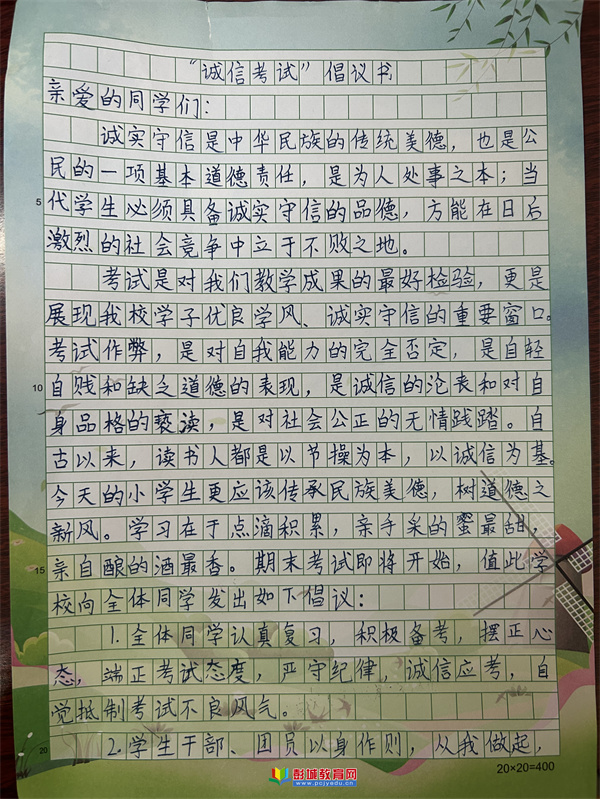 “诚信考试”倡议书
亲爱的同学们：
诚实守信是中华民族的传统美德，也是公
民的一项基本道德责任，是为人处事之本；当
5
代学生必须具备诚实守信的品德，方能在日后
激烈的社会竞争中立于不败之地。
考试是对我们教学成果的最好检验，更是
展现我校学子优良学风、诚实守信的重要窗口。
考试作弊，是对自我能力的完全否定，是自轻
10
自贱和缺乏道德的表现，是诚信的沦丧和对自
身品格的亵渎，是对社会公正的无情践踏。自
古以来，读书人都是以节操为本，以诚信为基。
今天的小学生更应该传承民族美德，树道德之
新风。学习在于点滴积累，亲手采的蜜最甜，
15
亲自酿的酒最香。期末考试即将开始，值此学
校向全体同学发出如下倡议：
1.全体同学认真复习，积极备考，摆正心
态，端正考试态度，严守纪律，诚信应考，自
觉抵制考试不良风气。
20
2.学生干部、团员以身作则，从我做起，
20×20=400
彭城教育网
www.pcjyedu.com